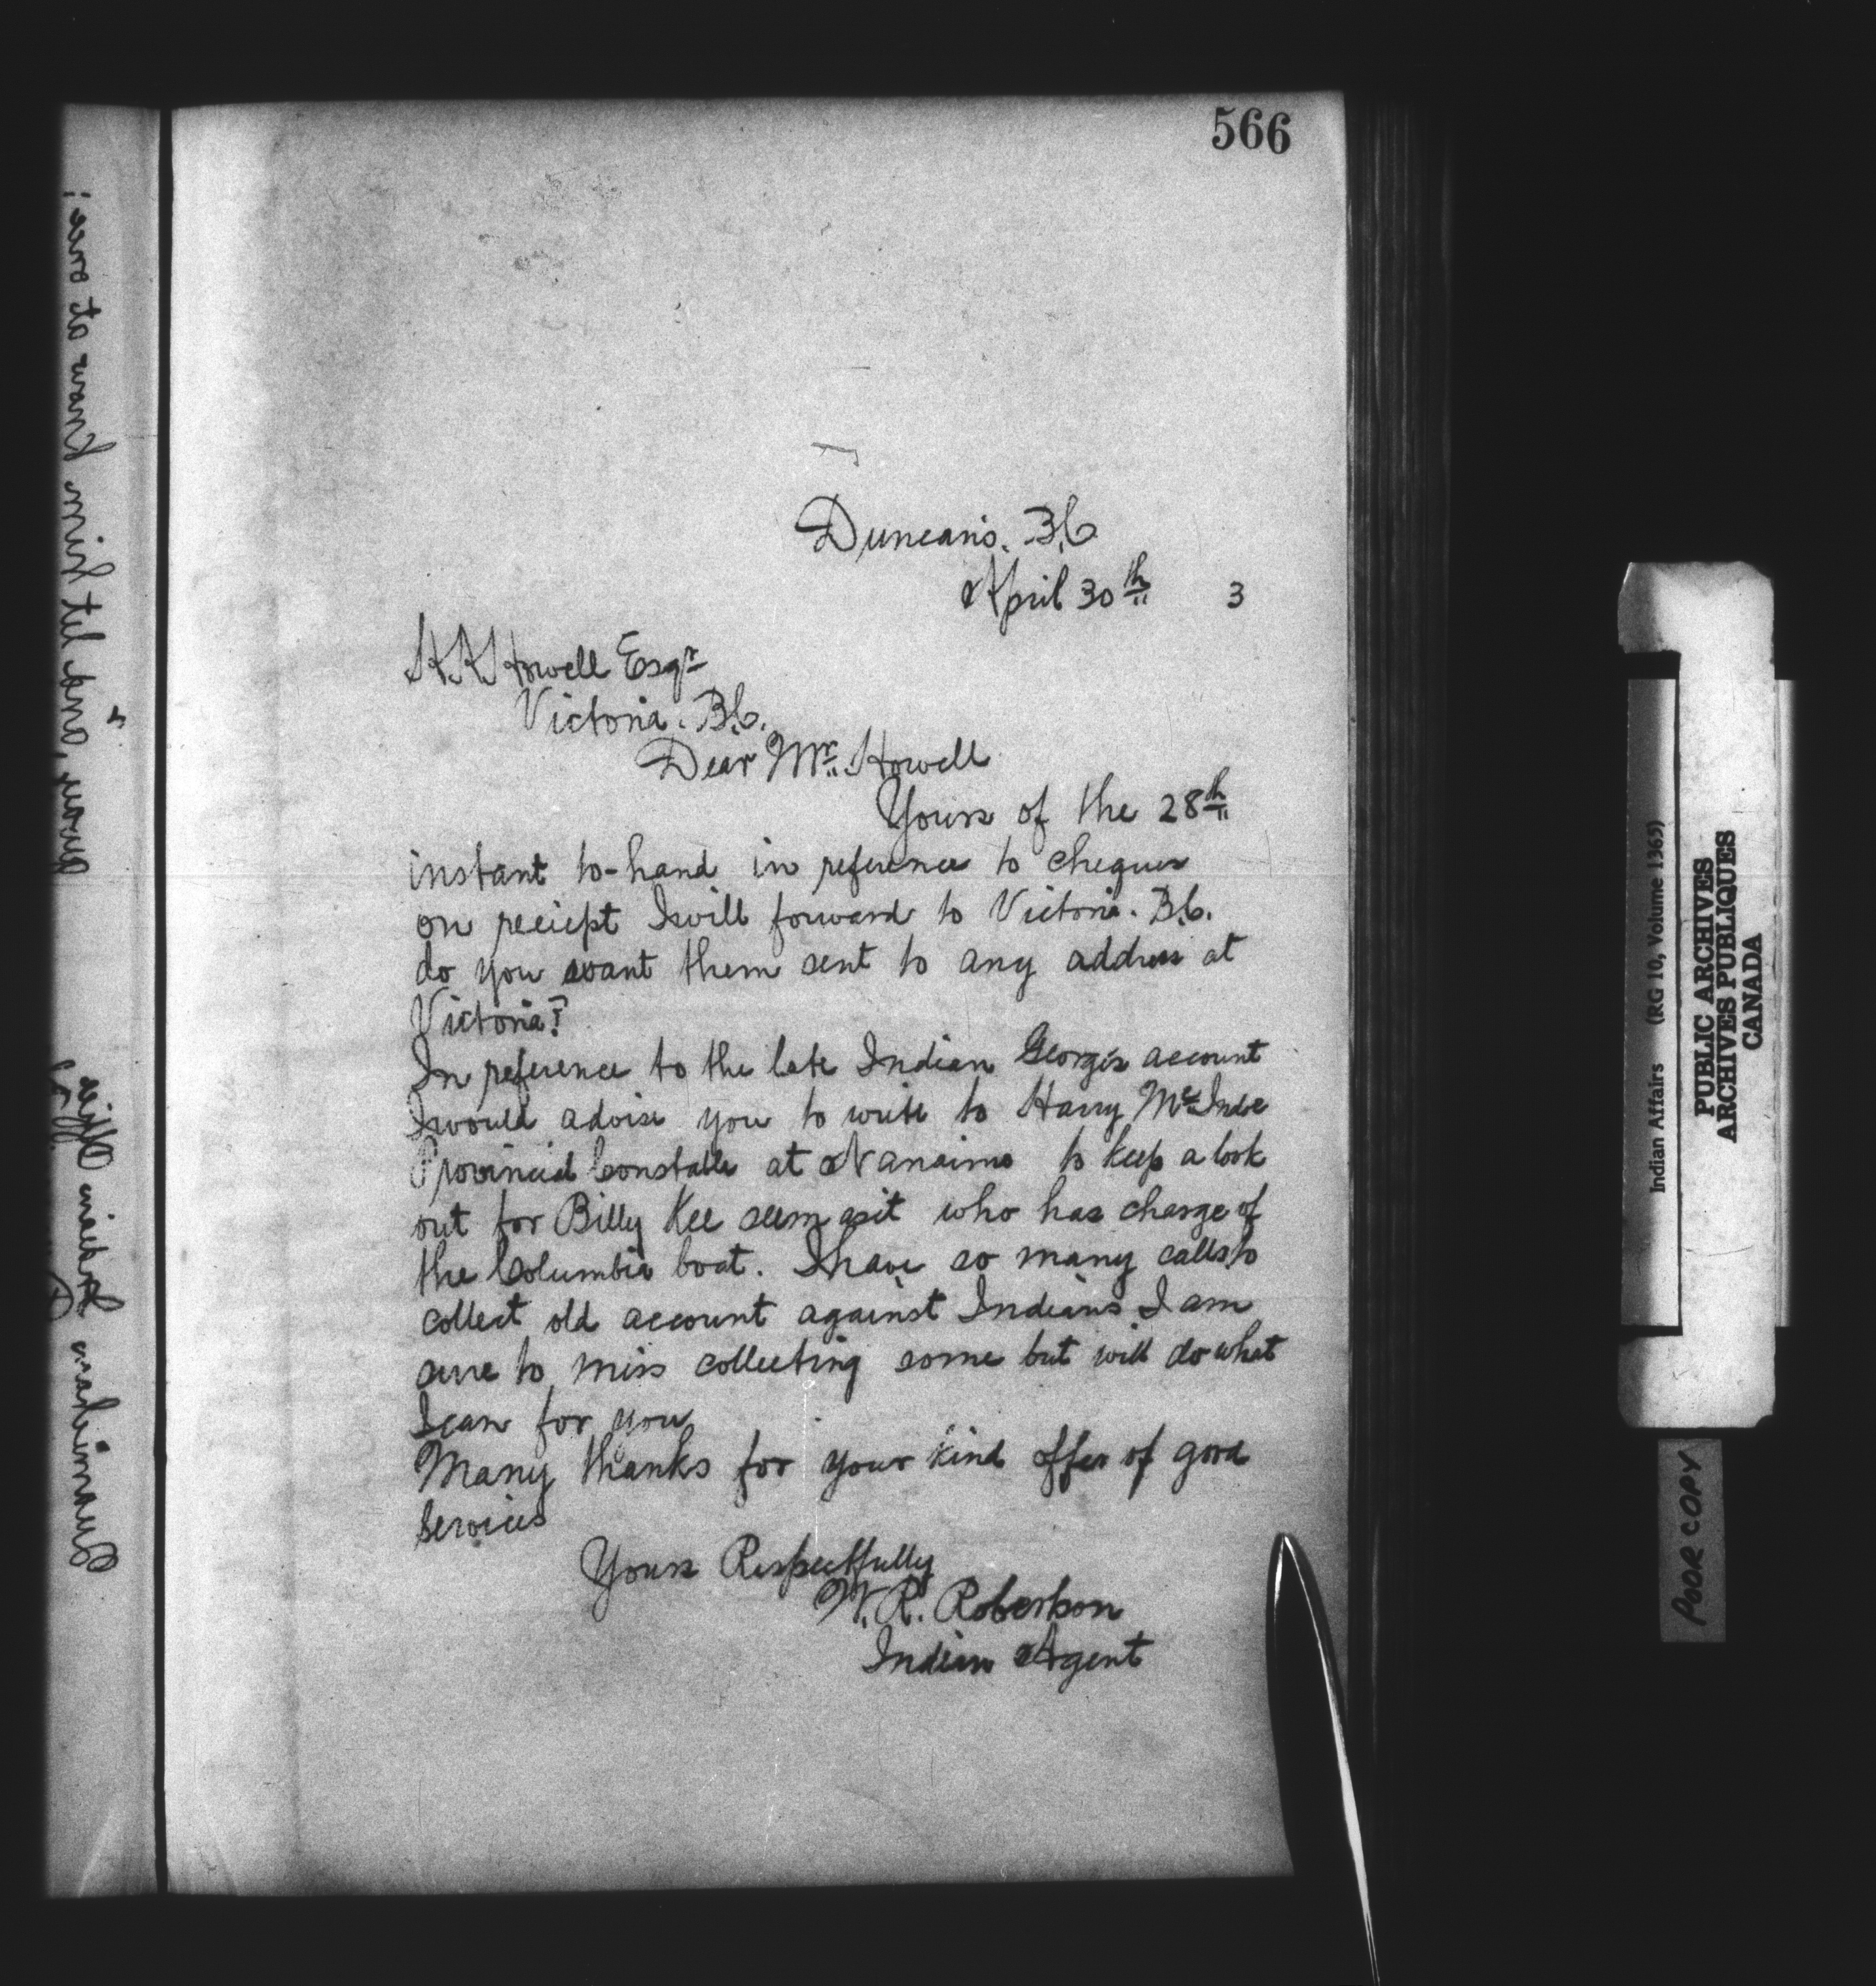 566
Duncan's. B.C
April 30th 3
Howell Esqr
Victoria. B.C.
Dear Mr. Howell
Yours of the 28th
instant to-hand in reference to cheques
on reciept I will forward to Victoria. B.C.
do you want them sent to any address at
Victoria?
In reference to the late Indian George's account
I would advise you to write to Harry
Provincial Constable at Nanaimo to keep a look
out for Billy Kee seem asit who has charge of
the Columbia boat. I have so many calls to
collect old account against Indians I am
sure to miss collecting some but will do what
I can for you
Many thanks for your kind offer of good
services
Yours Respectfully
W. R. Robertson
Indian Agent
Indian Affairs (RG 10, Volume 1365)
PUBLIC ARCHIVES
ARCHIVES PUBLIQUES
CANADA
POOR COPY